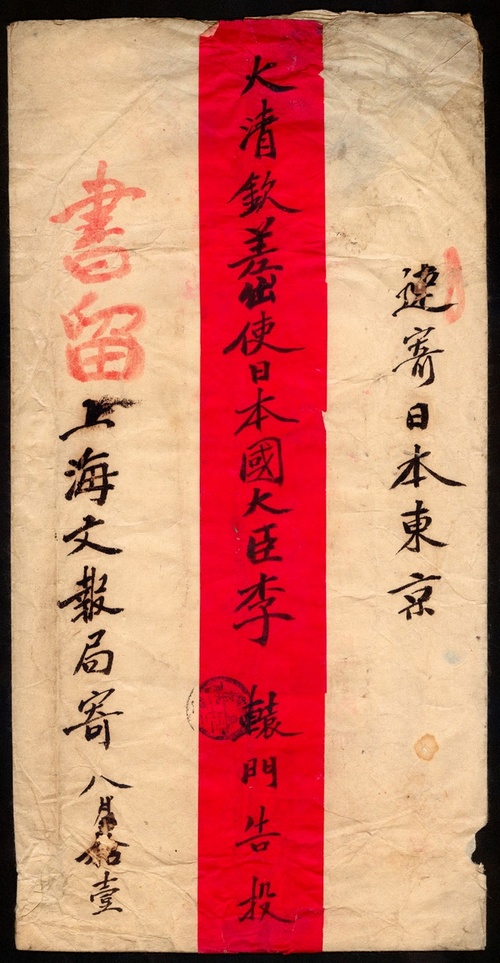 寄日本東京
大清欽差出使日本國大臣李 轅門告投
書留
上海文報局寄 八月拾壹